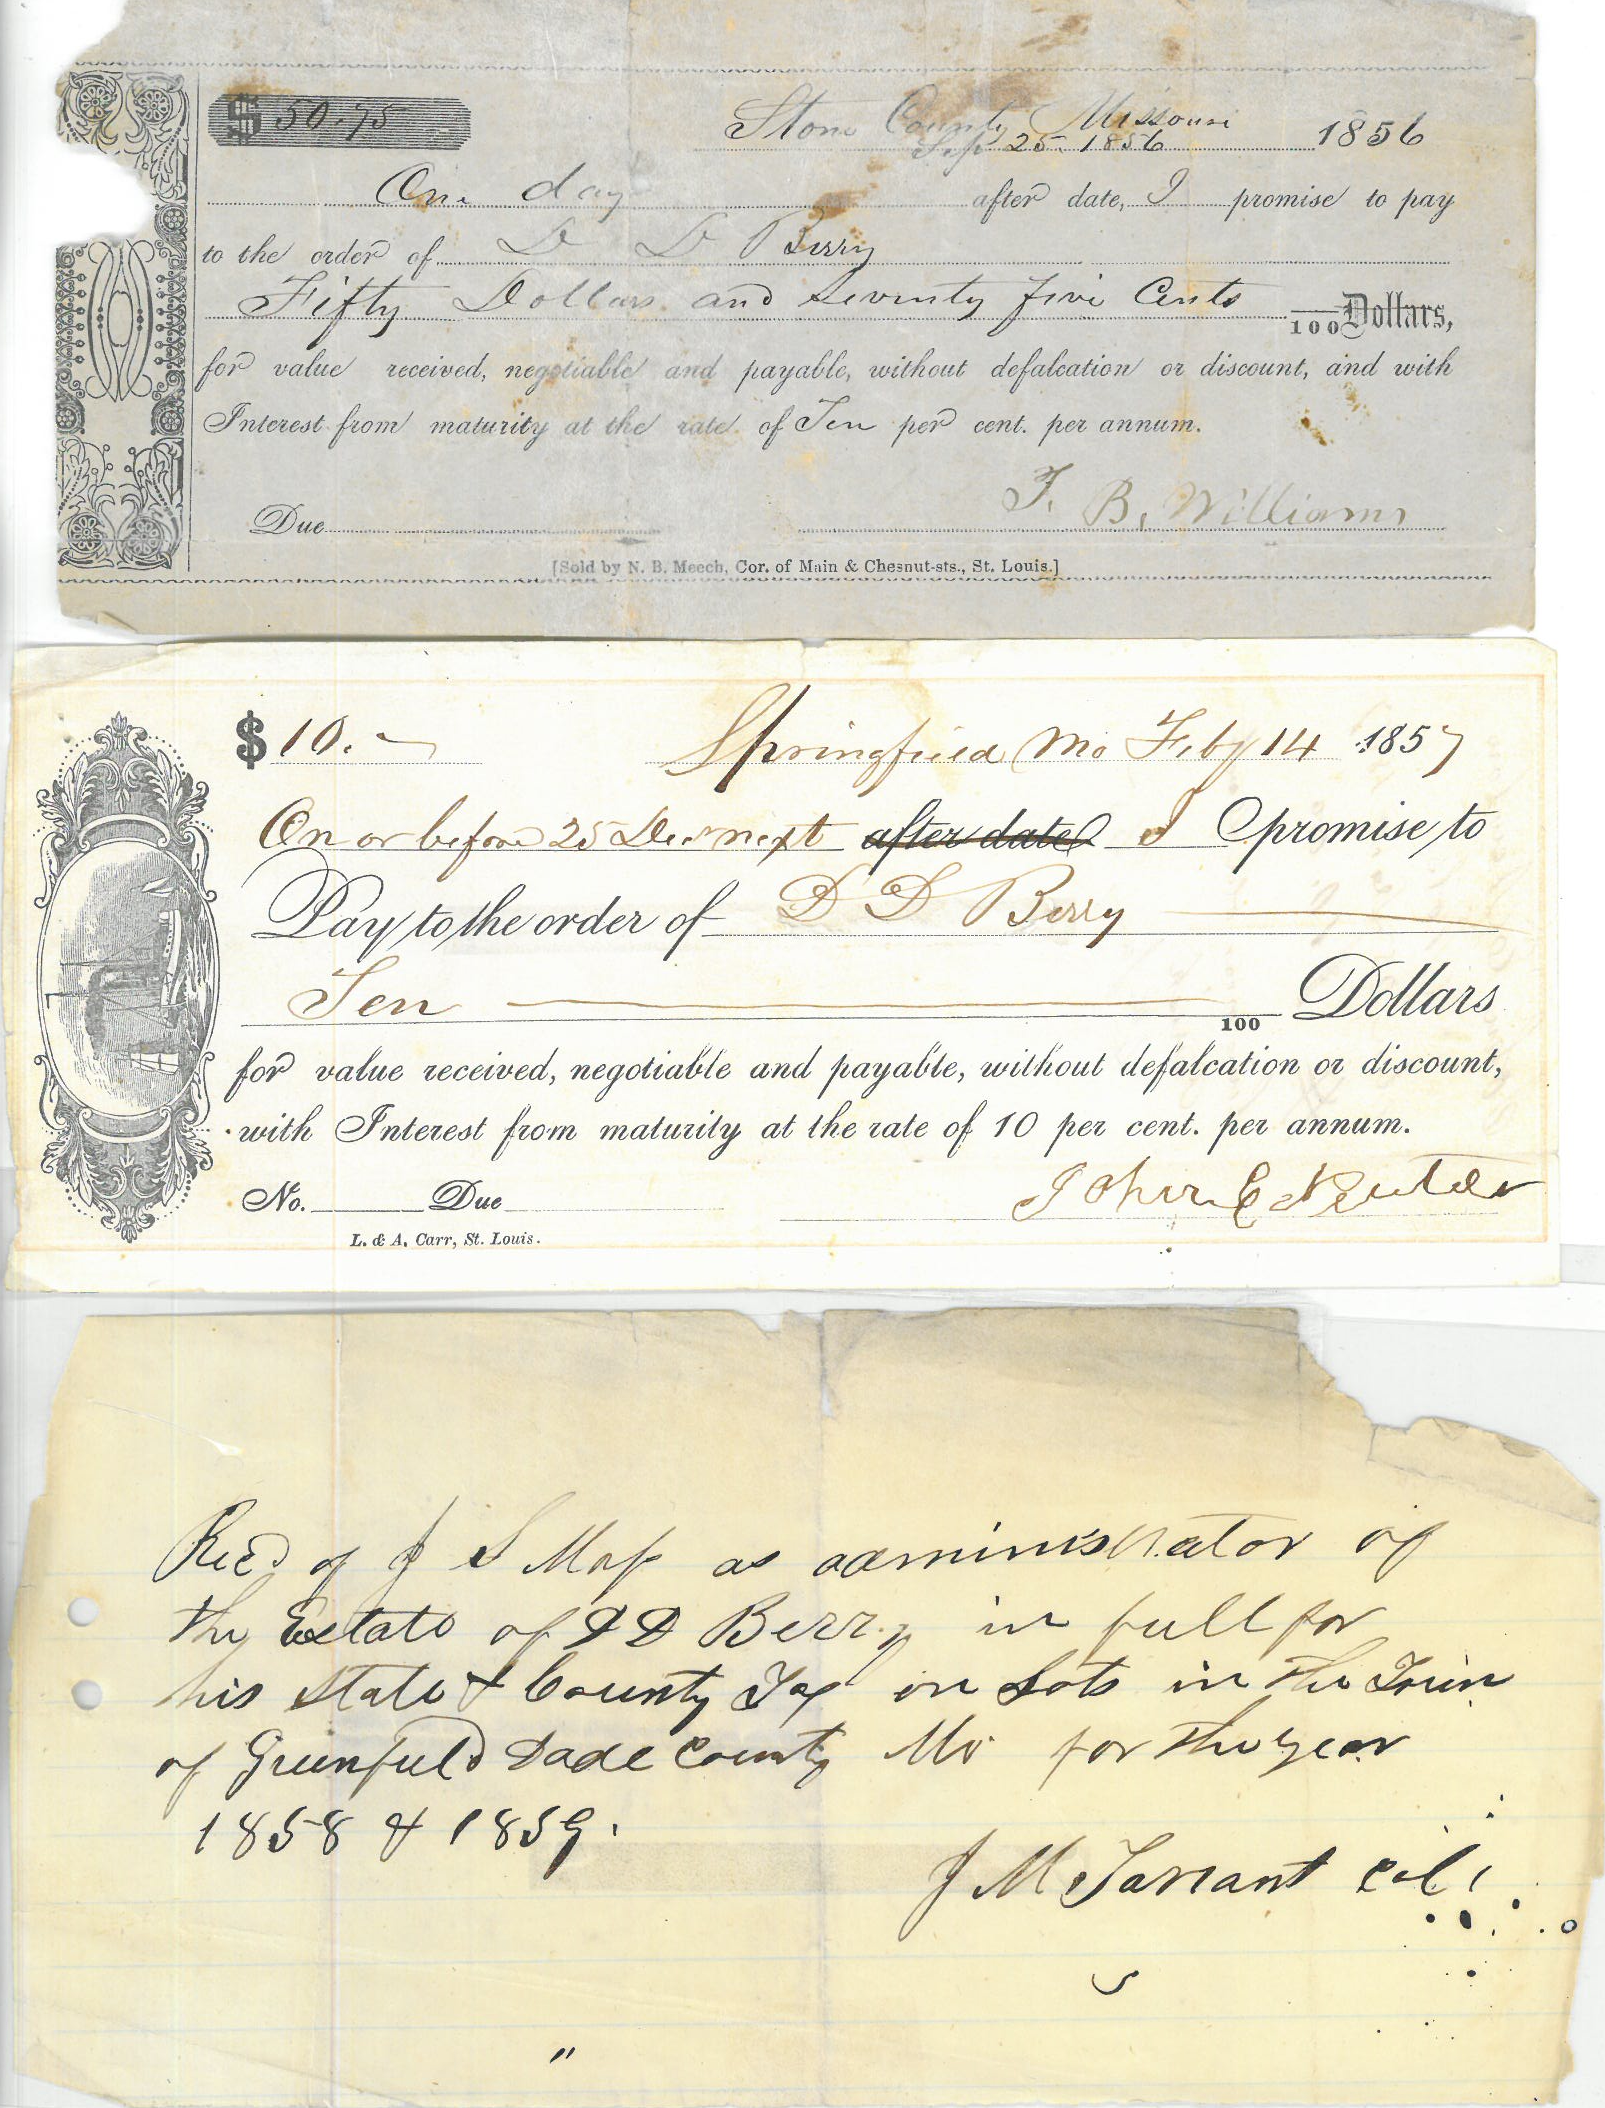 $ 50.75 Stone County Missouri 1856
Sep 25. 1856
One day after date, I promise to pay
to the order of D D Berry
Fifty Dollars and Seventy five Cents 100 Dollars,
for value received, negotiable and payable, without defalcation or discount, and with
Interest from maturity at the rate of Ten per cent. per annum.
Due
B. Williams
[Sold by N. B. Meech, Cor. of Main & Chesnut-sts., St. Louis.]
$ 10. Springfield Mo Feby 14 1857
On or before 25 Dec next after date I promise to
Pay to the order of D D Berry
Ten 100 Dollars
for value received, negotiable and payable, without defalcation or discount,
with Interest from maturity at the rate of 10 per cent. per annum.
No. Due John C
L. & A. Carr, St. Louis.
Recd of J S as administrator of
the Estate of D D Berry in full for
his State & County Tax on Lots in the Town
of Greenfield Dade County Mo for the year
1858 & 1859.
J M Tarrant Col